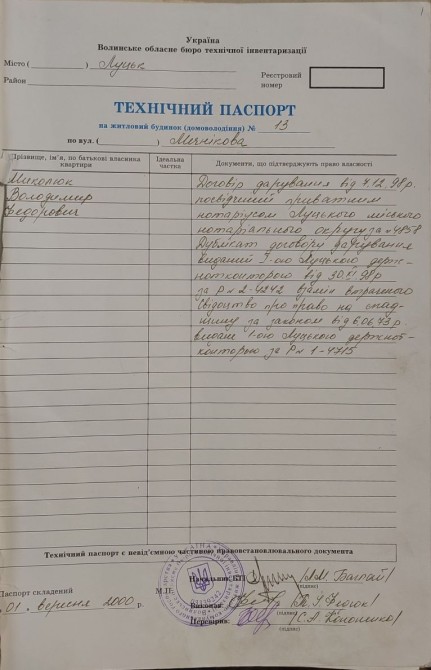 1
Україна
Волинське обласне бюро технічної інвентаризації
Місто ( ) Луцьк
Район
Реєстровий
номер
ТЕХНІЧНИЙ ПАСПОРТ
на житловий будинок (домоволодіння) № 13
по вул. ( ) Мечнікова
Прізвище, ім'я, по батькові власника квартири
Ідеальна частка
Документи, що підтверджують право власності
Миколюк
Володимир
Федорович
Договір дарування від 4.12.98р.
посвідчений приватним
нотаріусом Луцького міського
нотаріального округу за №4858
Дублікат договору дарування
виданий I-ою Луцькою держ-
нотконторою від 30.XI 98р
за Р№ 2-4242 взамін втраченого
Свідоцтво про право на спад-
щину за законом від 6.06.73р
видане 1-ою Луцькою держнот-
конторою за Р№ 1-4715
Технічний паспорт є невід'ємною частиною правовстановлювального документа
Паспорт складений
01. вересня 2000 р.
М.П.
Начальник БТІ
(підпис)
Виконав:
(підпис)
Перевірив:
(підпис)